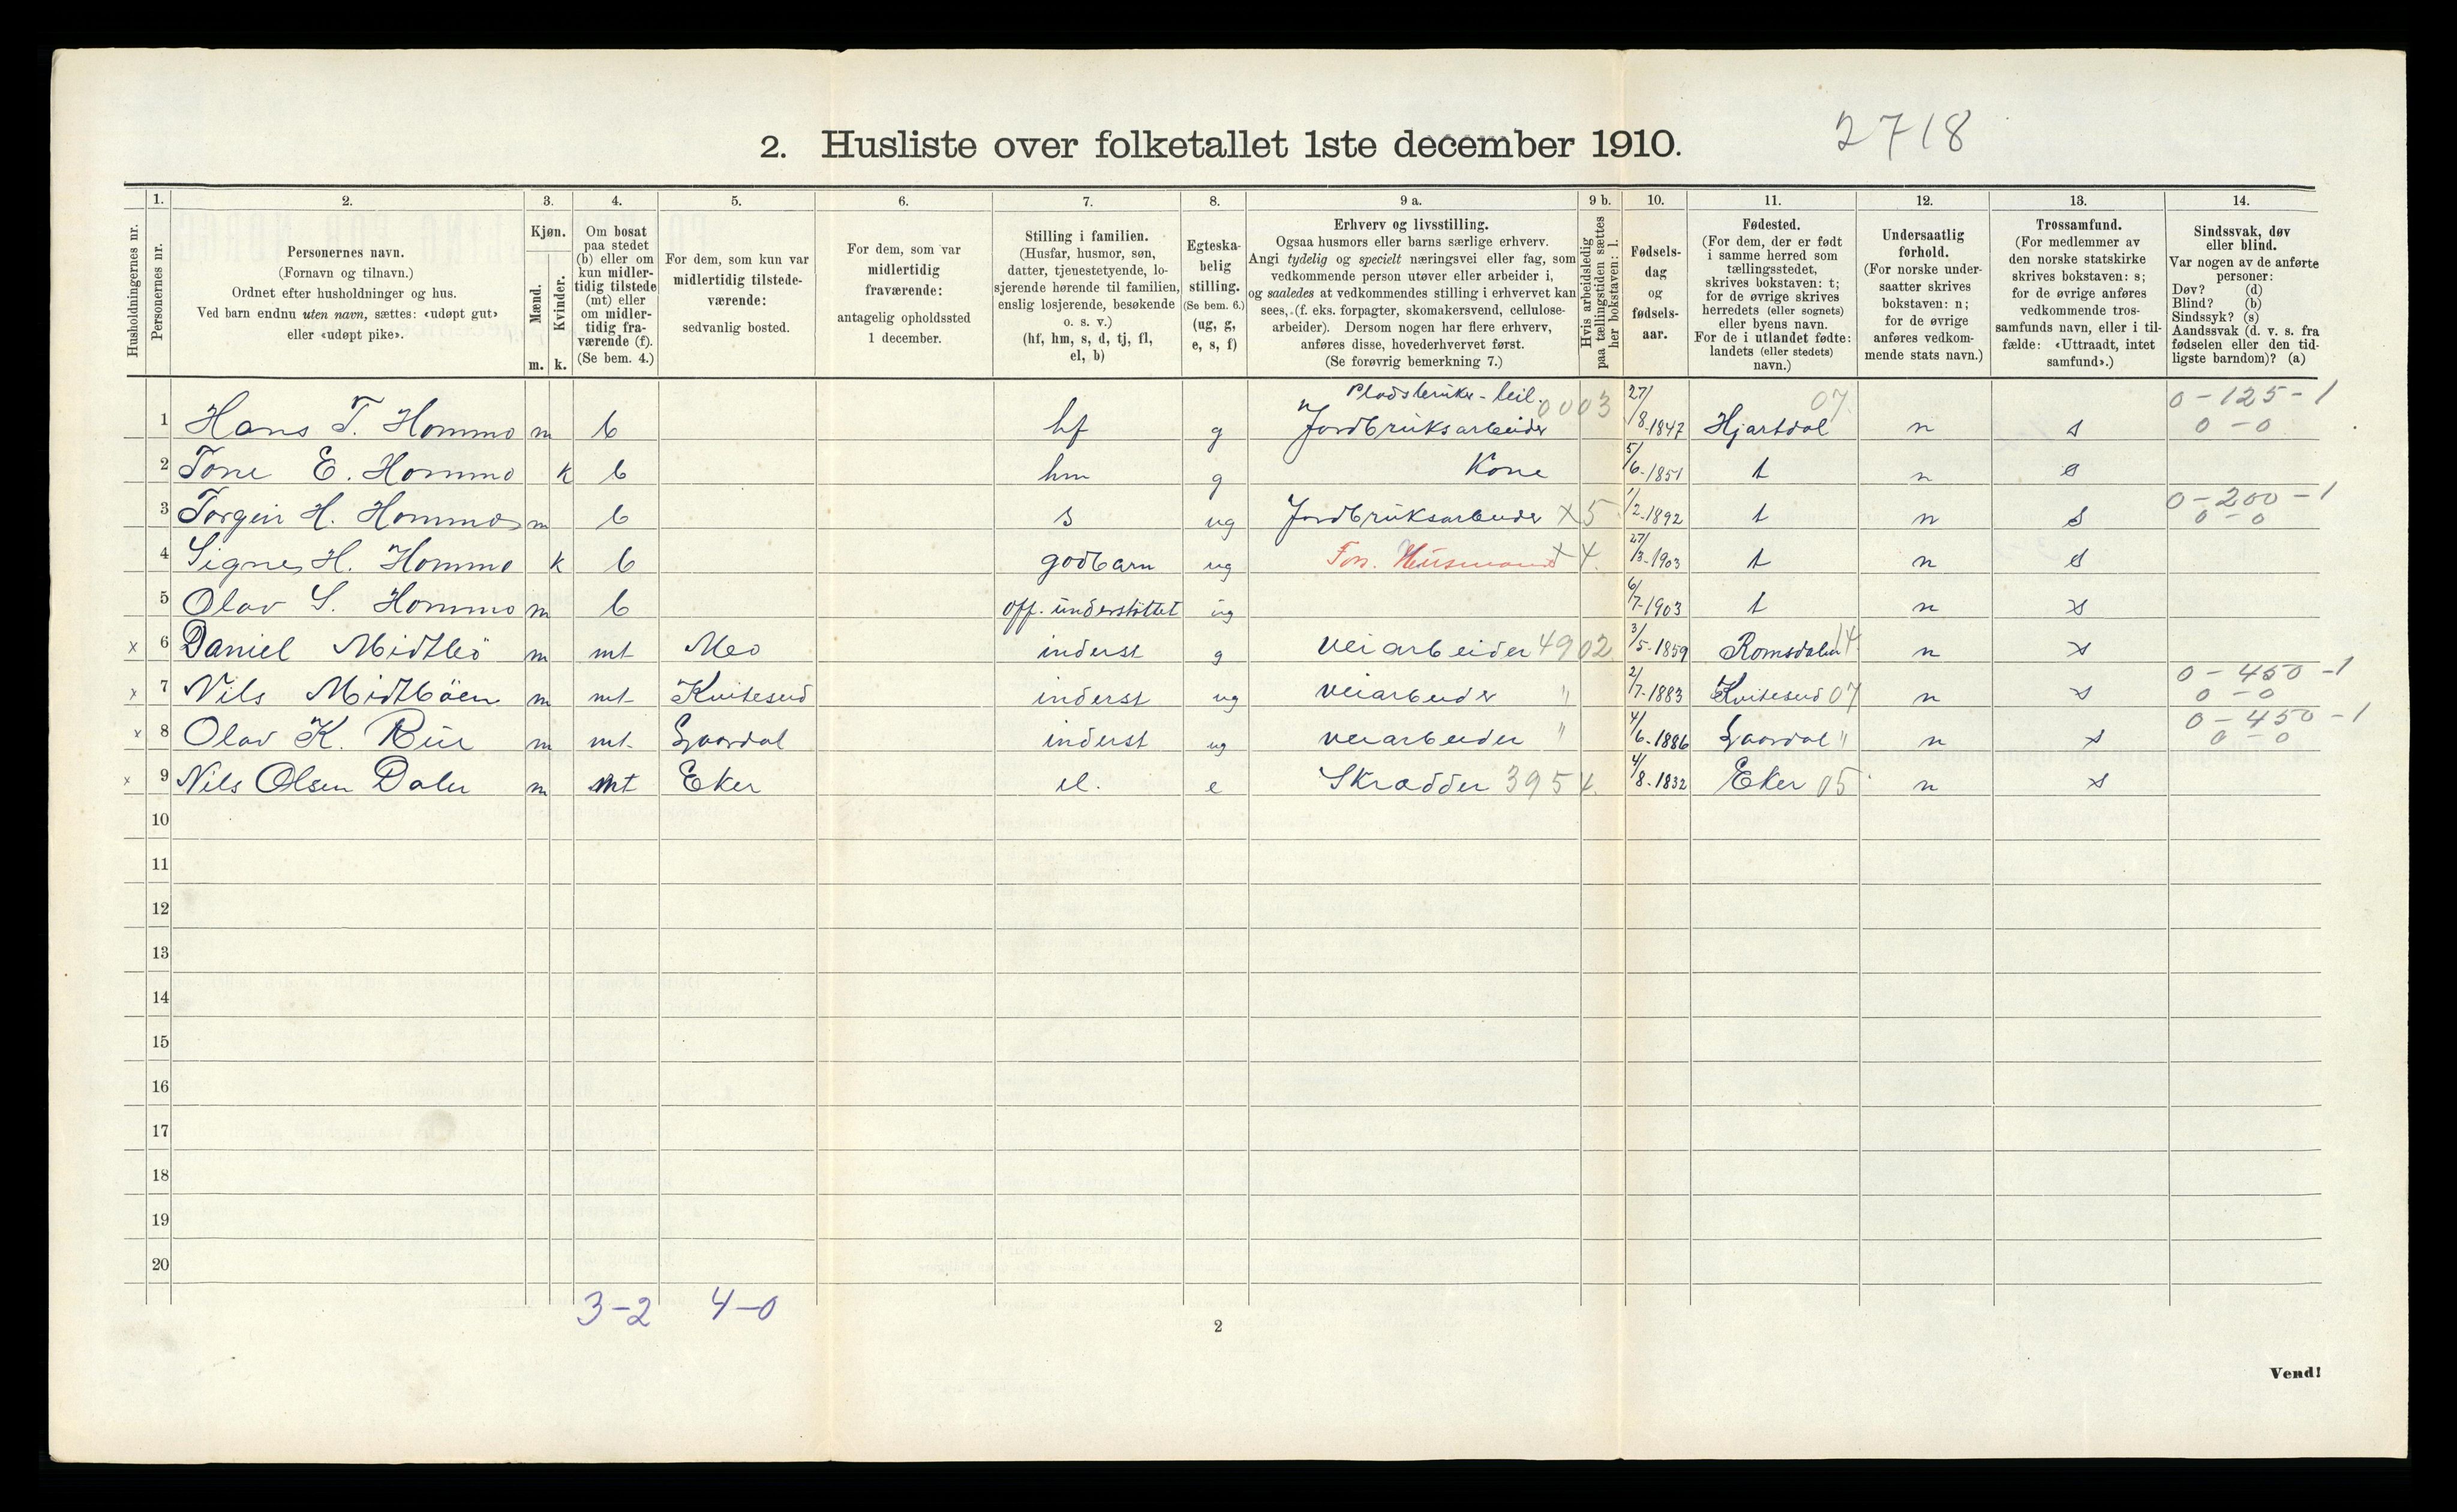 2. Husliste over folketallet 1ste december 1910. 2718
1. 2. 3. 4. 5. 6. 7. 8. 9 a. 9 b. 10. 11. 12. 13. 14.
Husholdningernes nr.
Personernes nr.
Personernes navn.
(Fornavn og tilnavn.)
Ordnet efter husholdninger og hus.
Ved barn endnu uten navn, sættes: «udøpt gut»
eller «udøpt pike».
Kjøn.
Mænd.
Kvinder.
m. k.
Om bosat
paa stedet
(b) eller om
kun midler-
tidig tilstede
(mt) eller
om midler-
tidig fra-
værende (f).
(Se bem. 4.)
For dem, som kun var
midlertidig tilstede-
værende:
sedvanlig bosted.
For dem, som var
midlertidig
fraværende:
antagelig opholdssted
1 december.
Stilling i familien.
(Husfar, husmor, søn,
datter, tjenestetyende, lo-
sjerende hørende til familien,
enslig losjerende, besøkende
o. s. v.)
(hf, hm, s, d, tj, fl,
el, b)
Egteska-
belig
stilling.
(Se bem. 6.)
(ug, g,
e, s, f)
Erhverv og livsstilling.
Ogsaa husmors eller barns særlige erhverv.
Angi tydelig og specielt næringsvei eller fag, som
vedkommende person utøver eller arbeider i,
og saaledes at vedkommendes stilling i erhvervet kan
sees, (f. eks. forpagter, skomakersvend, cellulose-
arbeider). Dersom nogen har flere erhverv,
anføres disse, hovederhvervet først.
(Se forøvrig bemerkning 7.)
Hvis arbeidsledig
paa tællingstiden sættes
her bokstaven: l.
Fødsels-
dag
og
fødsels-
aar.
Fødested.
(For dem, der er født
i samme herred som
tællingsstedet,
skrives bokstaven: t;
for de øvrige skrives
herredets (eller sognets)
eller byens navn.
For de i utlandet fødte:
landets (eller stedets)
navn.)
Undersaatlig
forhold.
(For norske under-
saatter skrives
bokstaven: n;
for de øvrige
anføres vedkom-
mende stats navn.)
Trossamfund.
(For medlemmer av
den norske statskirke
skrives bokstaven: s;
for de øvrige anføres
vedkommende tros-
samfunds navn, eller i til-
fælde: «Uttraadt, intet
samfund».)
Sindssvak, døv
eller blind.
Var nogen av de anførte
personer:
Døv? (d)
Blind? (b)
Sindssyk? (s)
Aandssvak (d. v. s. fra
fødselen eller den tid-
ligste barndom)? (a)
Pladsbruker - leil. 0003 07 0-125-1
1 Hans T. Hommo m b hf g Jordbruksarbeider 27/8-1847 Hjartdal n s 0-0
2 Tone E. Hommo k b hm g Kone 5/6-1851 t n s
3 Torgeir H. Hommo m b s ug Jordbruksarbeider X5 1/2-1892 t n s 0-200-1 0-0
4 Signe H. Hommo k b godbarn ug Fon. Husmand X4 27/3-1903 t n s
5 Olav S. Hommo m b off. understöttet ug 6/7-1903 t n s
x 6 Daniel Midtbö m mt Mo inderst g veiarbeider 4902 3/5-1859 Romsdalen 14 n s
x 7 Nils Midtböen m mt Kviteseid inderst ug veiarbeider " 2/7-1883 Kviteseid 07 n s 0-450-1 0-0
x 8 Olav K. Rui m mt Laardal inderst ug veiarbeider " 4/6-1886 Laardal " n s 0-450-1 0-0
x 9 Nils Olsen Dalen m mt Eker el. e Skrædder 3954 4/8-1832 Eker 05 n s
10
11
12
13
14
15
16
17
18
19
20
3-2 4-0
2
Vend!